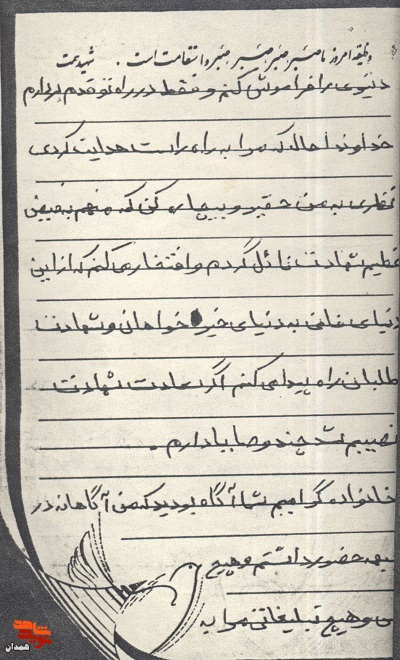 وظیفه امروز ما صبر، صبر، صبر، صبر و استقامت است. شهید بهشتی
دنیوی را فراموش کنم و فقط در راه تو قدم بردارم
خداوندا حال که مرا به راه راست هدایت کردی
نظری به من حقیر و بیچاره کن که من هم به فیض
عظیم شهادت نائل گردم و افتخار می کنم که از این
دنیای فانی به دنیای خیر خواهان و شهادت
طلبان راه پیدا می کنم اگر سعادت شهادت
نصیبم شد چند وصایا دارم.
خانواده گرامیم شما آگاه بودید که من آگاهانه در
جبهه حضور داشتم و هیچ
و هیچ تبلیغاتی مرا به
نوید شاهد
همدان